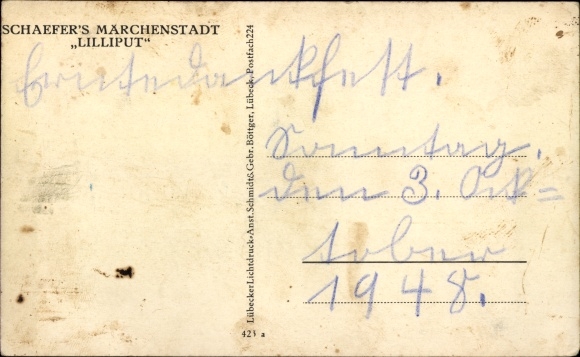 SCHAEFER'S MÄRCHENSTADT
„LILLIPUT“
Erntedankfest.
Sonntag,
den 3. Ok=
tober
1948.
Lübecker Lichtdruck-Anst. Schmidt & Gebr. Böttger, Lübeck, Postfach 224
423 a